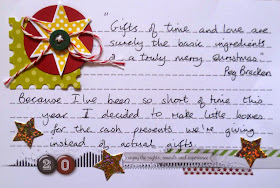 "Gifts of time and love are
surely the basic ingredients
of a truly merry Christmas."
Peg Bracken
Because I've been so short of time this
year I decided to make little boxes
for the cash presents we're giving
instead of actual gifts.
enjoy the sights, sounds and experience
20